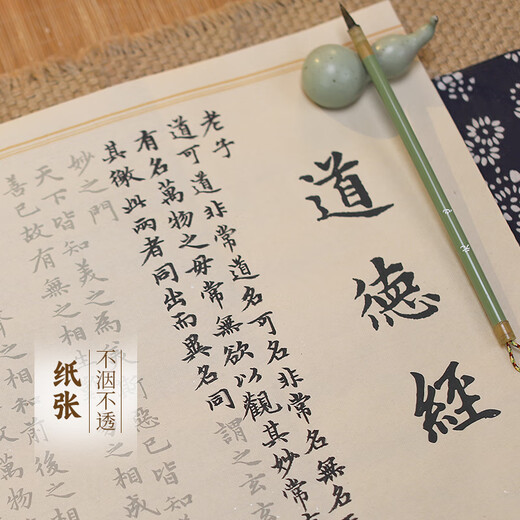 道德經
老子
道可道非常道名可名非常名無名
有名萬物之毋常無欲以觀其妙常
其徼此兩者同出而異名同謂之玄玄
妙之門
天下皆知美之為惡已皆知
善已故有無之相之相成
之相和前後之相
萬物
纸张
不洇不透